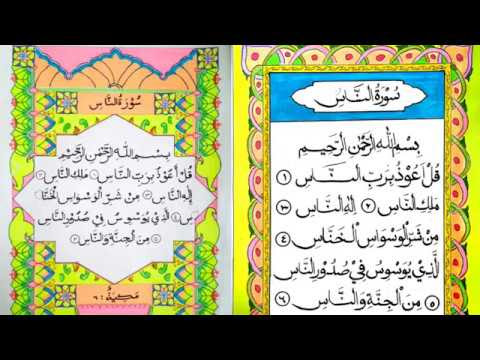 سُوْرَةُ النَّاسِ
بِسْمِ اللّٰهِ الرَّحْمٰنِ الرَّحِيْمِ
قُلْ اَعُوْذُ بِرَبِّ النَّاسِ ١
مَلِكِ النَّاسِ ٢ اِلٰهِ النَّاسِ ٣
مِنْ شَرِّ الْوَسْوَاسِ الْخَنَّاسِ ٤
الَّذِيْ يُوَسْوِسُ فِيْ صُدُوْرِ النَّاسِ
٥ مِنَ الْجِنَّةِ وَالنَّاسِ ٦
سُوْرَةُ النَّاسِ
بِسْمِ اللّٰهِ الرَّحْمٰنِ الرَّحِيْمِ
قُلْ اَعُوْذُ بِرَبِّ النَّاسِ مَلِكِ النَّاسِ
اِلٰهِ النَّاسِ مِنْ شَرِّ الْوَسْوَاسِ الْخَنَّا
سِ الَّذِيْ يُوَسْوِسُ فِيْ صُدُوْرِ النَّاسِ
مِنَ الْجِنَّةِ وَالنَّاسِ
مَكِّيَّةٌ : ٦